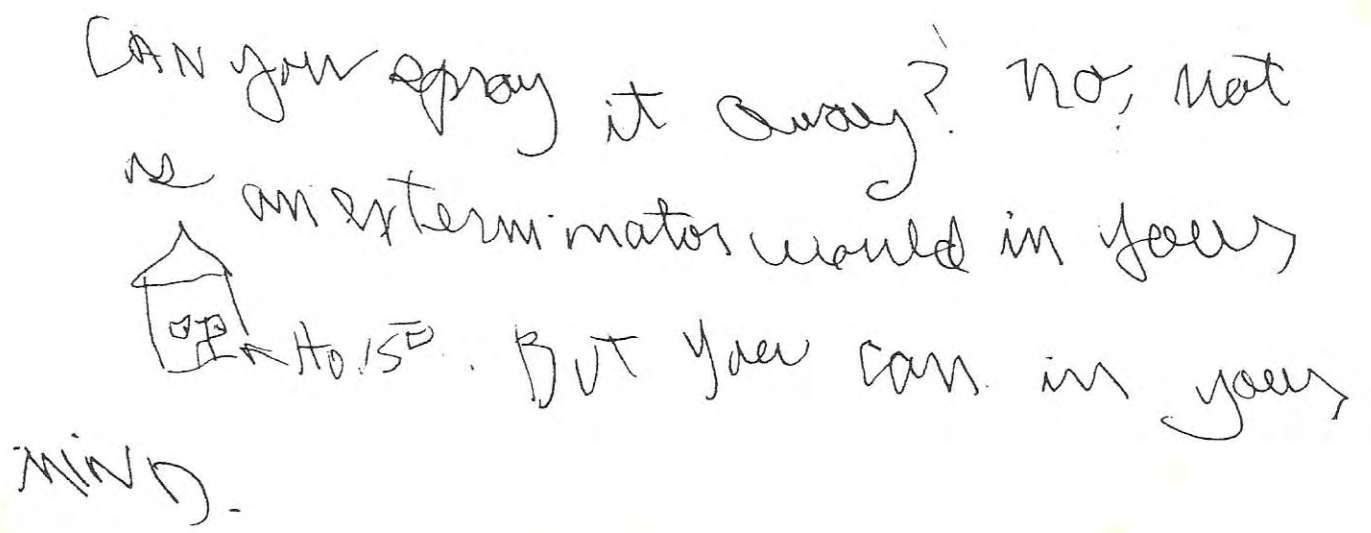 CAN you spray it away? no, not
as an exterminator would in your
House. BUT you can in your
MIND.